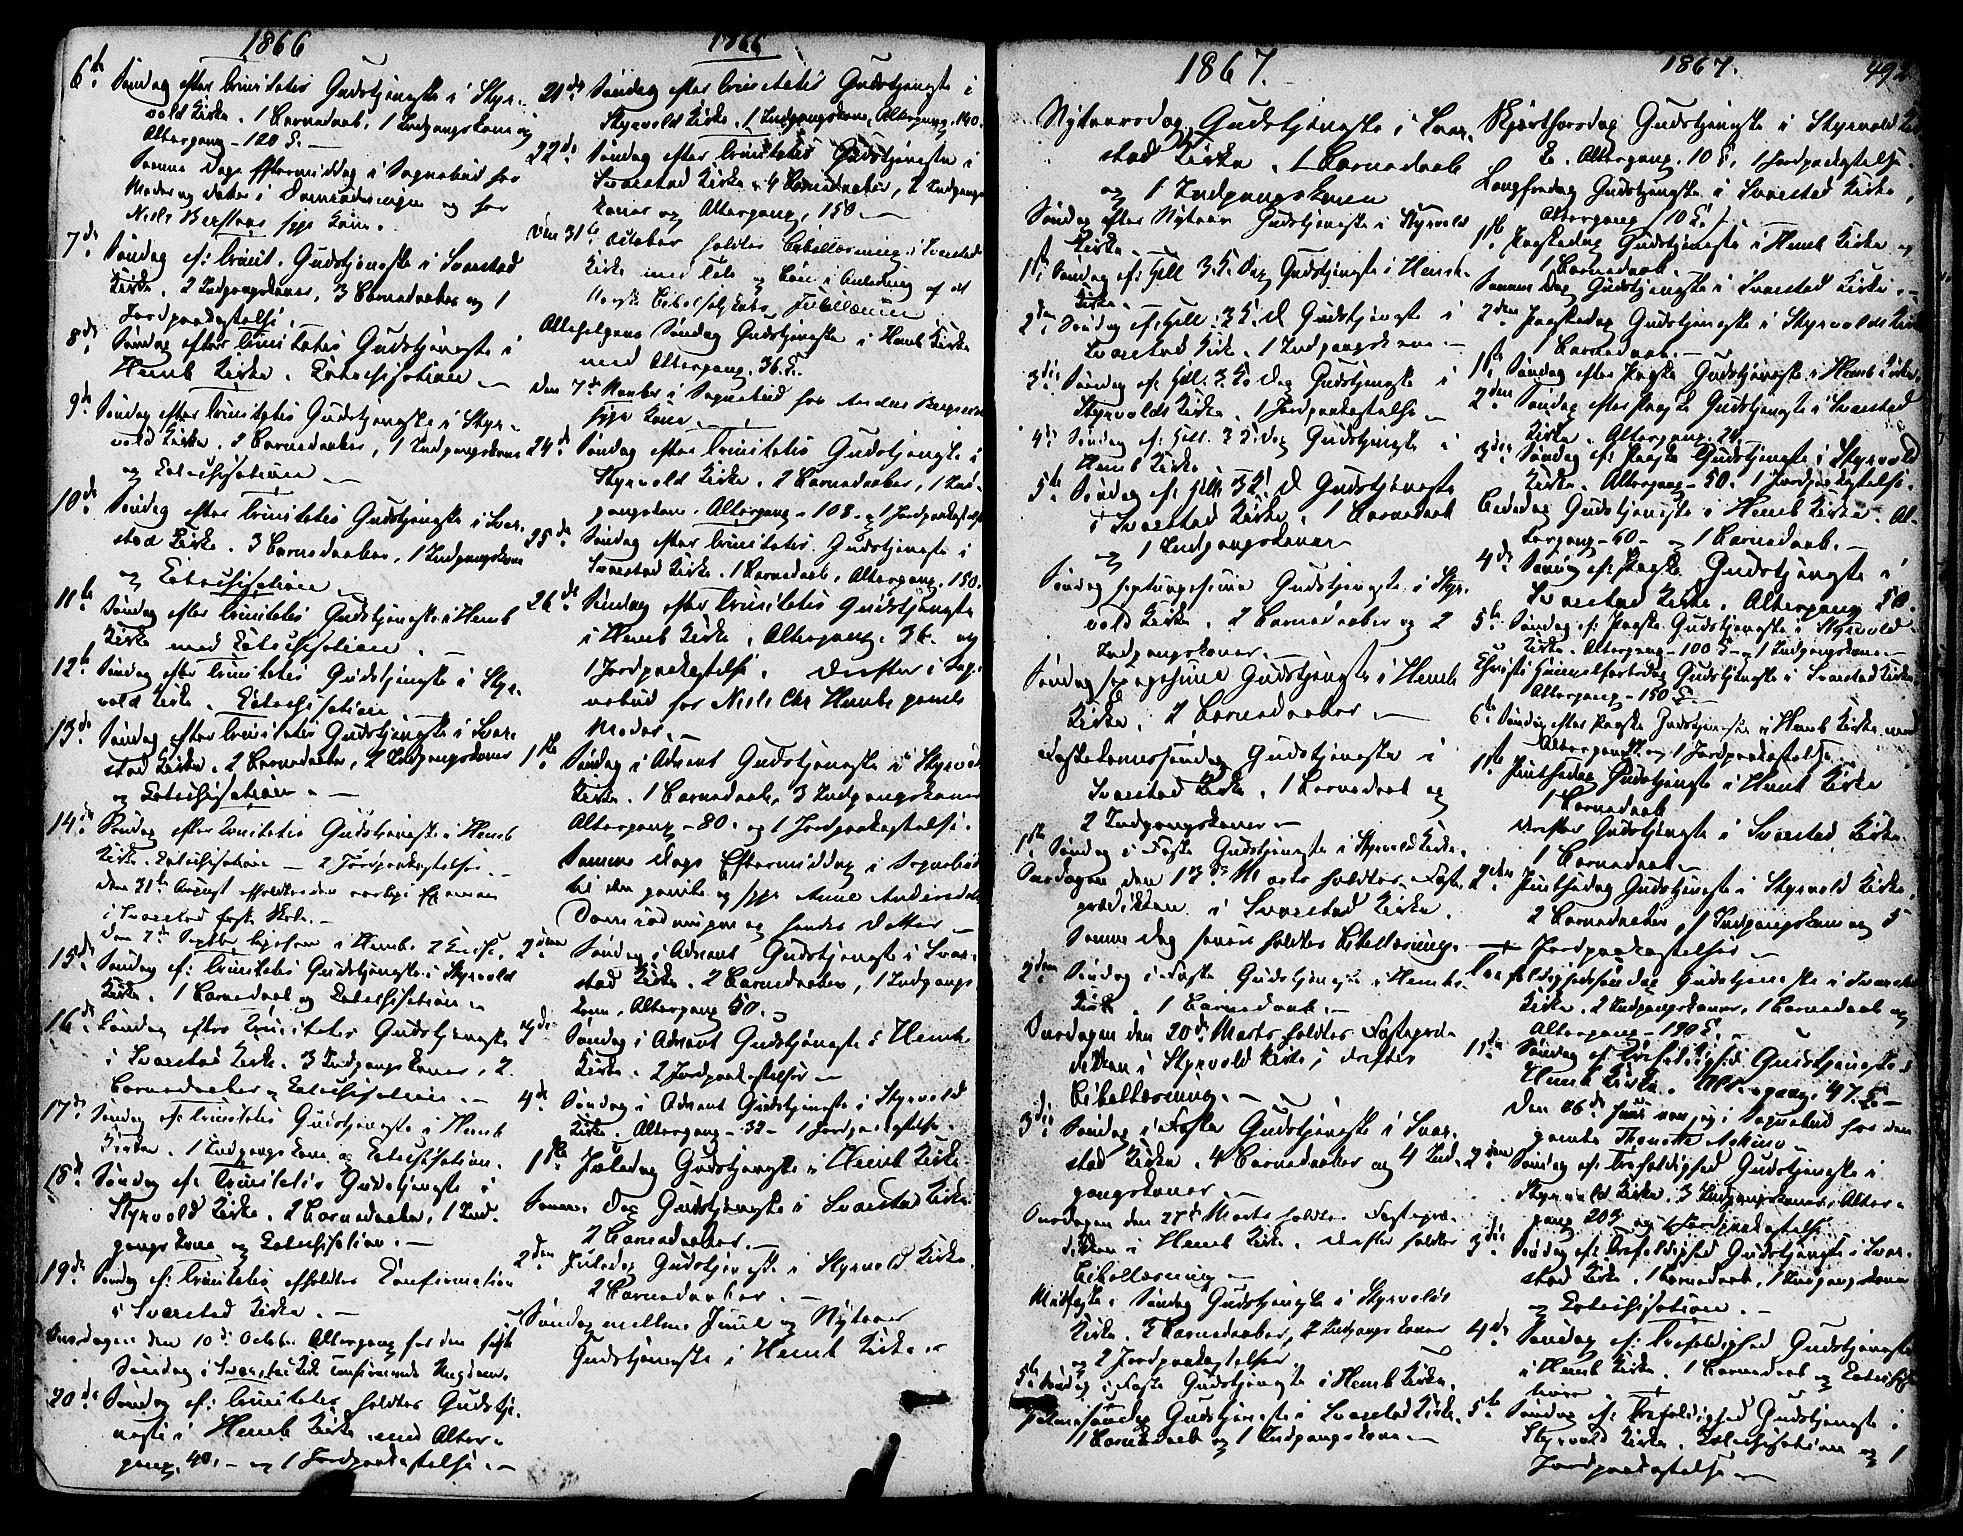 1866
6te Søndag efter Trinitatis Gudstjeneste i Styr-
vold Kirke. 1 Barnedaab, 1 Indgangskone og
Altergang - 120 S. -
Samme Dags Eftermiddag i Sognebud hos
Moder og Datter i og hos
Niels syge Kone.
7de Søndag ef: Trinit. Gudstjeneste i Svarstad
Kirke. 2 Indgangskoner, 3 Barnedaaber og 1
Jordpaakastelse.
8de Søndag efter Trinitatis Gudstjeneste i
Hemb Kirke. Catechisation -
9de Søndag efter Trinitatis Gudstjeneste i Styr-
vold Kirke. 2 Barnedaaber, 1 Indgangskone
og Catechisation -
10de Søndag efter Trinitatis Gudstjeneste i Svar-
stad Kirke. 3 Barnedaaber, 1 Indgangskone
og Catechisation -
11te Søndag efter Trinitatis Gudstjeneste i Hemb
Kirke med Catechisation. -
12te Søndag efter Trinitatis Gudstjeneste i Styr-
vold Kirke. Catechisation -
13de Søndag efter Trinitatis Gudstjeneste i Svar-
stad Kirke. 2 Barnedaaber, 2 Indgangskoner
og Catechisation. -
14de Søndag efter Trinitatis Gudstjeneste i Hemb
Kirke. Catechisation - 2 Jordpaakastelser. -
Den 31te August afholdtes den aarlige Examen
i Svarstad faste Skole. -
Den 7de Septbr i Hemb.
15de Søndag ef: Trinitatis Gudstjeneste i Styrvold
Kirke. 1 Barnedaab og Catechisation -
16de Søndag efter Trinitatis Gudstjeneste
i Svarstad Kirke. 3 Indgangskoner, 2
Barnedaaber og Catechisation. -
17de Søndag ef: Trinitatis Gudstjeneste i Hemb
Kirke. 1 Indgangskone og Catechisation.
18de Søndag ef: Trinitatis Gudstjeneste i
Styrvold Kirke. 2 Barnedaaber, 1 Ind-
gangskone og Catechisation. -
19de Søndag ef: Trinitatis afholdtes Confirmation
i Svarstad Kirke. -
Onsdagen den 10de October Altergang for den sidste
Søndag i Svarstad Kirke confirmerede Ungdom.
20de Søndag ef: Trinitatis holdtes Gudstje-
neste i Hemb Kirke med Alter-
gang. 40. - og 1 Jordpaakastelse. -
1866
21de Søndag efter Trinitatis Gudstjeneste i
Styrvold Kirke. 1 Indgangskone, Altergang. 140.
22de Søndag efter Trinitatis Gudstjeneste i
Svarstad Kirke. 4 Barnedaaber, 2 Indgangs-
koner og Altergang. 150. -
Den 31te October holdtes Bibellæsning i Svarstad
Kirke med Tale og Bøn i Anledning af det
Norske Bibelselskabs Jubilæum
Allehelgens Søndag Gudstjeneste i Hemb Kirke
med Altergang. 36. S.
Den 7de Novbr i Sognebud hos Anders
syge Kone. -
24de Søndag efter Trinitatis Gudstjeneste i
Styrvold Kirke. 2 Barnedaaber, 1 Ind-
gangskone. Altergang - 108. og 1 Jordpaakastelse
25de Søndag efter Trinitatis. Gudstjeneste i
Svarstad Kirke. 1 Barnedaab, Altergang. 150.
26de Søndag efter Trinitatis Gudstjeneste
i Hemb Kirke. Altergang. 36. og
1 Jordpaakastelse. Derefter i Sog-
nebud hos Niels Chr Hembs gamle
Moder. -
1ste Søndag i Advent Gudstjeneste i Styrvold
Kirke. 1 Barnedaab, 3 Indgangskoner
Altergang - 80. og 1 Jordpaakastelse.
Samme Dags Eftermiddag i Sognebud
til den gamle og syge Anne Andersdatter
og hendes Datter -
2den Søndag i Advent Gudstjeneste i Svar-
stad Kirke. 2 Barnedaaber, 1 Indgangs-
kone, Altergang 50. -
3die Søndag i Advent Gudstjeneste i Hemb
Kirke. 2 Jordpaakastelser -
4de Søndag i Advent Gudstjeneste i Styrvold
Kirke. Altergang - 32 - 1 Jordpaakastelse. -
1ste Juledag Gudstjeneste i Hemb Kirke.
Samme Dag Gudstjeneste i Svarstad Kirke
2 Barnedaaber. -
2den Juledag Gudstjeneste i Styrvold Kirke.
2 Barnedaaber. -
Søndag mellem Juul og Nytaar
Gudstjeneste i Hemb Kirke. -
1867.
Nytaarsdag Gudstjeneste i Svar-
stad Kirke. 1 Barnedaab
og 1 Indgangskone
Søndag efter Nytaar Gudstjeneste i Styrvold
Kirke. -
1ste Søndag ef: Hell. 3 K. Dag Gudstjeneste i Hemb
Kirke. -
2den Søndag ef: Hell. 3 K. D Gudstjeneste i
Svarstad Kirk. 1 Indgangskone -
3die Søndag ef: Hell. 3 K Dag Gudstjeneste i
Styrvolds Kirke. 1 Jordpaakastelse -
4de Søndag ef: Hell. 3 K. Dag Gudstjeneste i
Hemb Kirke -
5te Søndag ef: Hell. 3 K. D Gudstjeneste
i Svarstad Kirke. 1 Barnedaab
og 1 Indgangskone -
Søndag septuagesima Gudstjeneste i Styr-
vold Kirke. 2 Barnedaaber og 2
Indgangskoner. -
Søndag sexagesima Gudstjeneste i Hemb
Kirke. 2 Barnedaaber. -
Fastelavnssøndag Gudstjeneste i
Svarstad Kirke. 1 Barnedaab og
2 Indgangskoner -
1ste Søndag i Faste Gudstjeneste i Styrvold Kirke.
Onsdagen den 13de Marts holdtes Faste-
prædiken i Svarstad Kirke.
Samme Dag forud holdtes Bibellæsning.
2den Søndag i Faste Gudstjeneste i Hemb
Kirke. 1 Barnedaab. -
Onsdagen den 20de Marts holdtes Fastepræ-
diken i Styrvold Kirke; derefter
Bibellæsning. -
3die Søndag i Faste Gudstjeneste i Svar-
stad Kirke. 4 Barnedaaber og 4 Ind-
gangskoner. -
Onsdagen den 27de Marts holdtes Fastepræ-
diken i Hemb Kirke. Derefter holdtes
Bibellæsning -
Midfaste Søndag Gudstjeneste i Styrvolds
Kirke. 3 Barnedaaber, 2 Indgangskoner
og 2 Jordpaakastelser.
5te Søndag i Faste Gudstjeneste i Hemb Kirke.
Palmesøndag Gudstjeneste i Svarstad Kirke.
1 Barnedaab og 1 Indgangskone. -
1867.
492
Skjærthorsdag Gudstjeneste i Styrvold Kir-
ke. Altergang. 10 S, 1 Jordpaakastelse.
Langfredag Gudstjeneste i Svarstad Kirke,
Altergang 110 S. -
1ste Paaskedag Gudstjeneste i Hemb Kirke og
1 Barnedaab.
Samme Dag Gudstjeneste i Svarstad Kirke. -
2den Paaskedag Gudstjeneste i Styrvolds Kirke
1 Barnedaab. -
1ste Søndag efter Paaske Gudstjeneste i Hemb Kirke.
2den Søndag efter Paaske Gudstjeneste i Svarstad
Kirke. Altergang. 70.
3die Søndag ef: Paaske Gudstjeneste i Styrvold
Kirke. Altergang - 50. 1 Jordpaakastelse.
Bededag Gudstjeneste i Hemb Kirke. Al-
tergang - 60 - og 1 Barnedaab. -
4de Søndag ef: Paaske Gudstjeneste i
Svarstad Kirke. Altergang 50.
5te Søndag ef: Paaske Gudstjeneste i Styrvold
Kirke. Altergang - 100 S - og 1 Indgangskone. -
Christi Himmelfartsdag Gudstjeneste i Svarstad Kirke
Altergang - 150 S. -
6te Søndag efter Paaske Gudstjeneste i Hemb Kirke med
Altergang og 1 Jordpaakastelse. -
1ste Pintsedag Gudstjeneste i Hemb Kirke
1 Barnedaab
Derefter Gudstjeneste i Svarstad Kirke.
1 Barnedaab. -
2den Pintsedag Gudstjeneste i Styrvold Kirke,
2 Barnedaaber, 1 Indgangskone og 5
Jordpaakastelser. -
Trefoldighedssøndag Gudstjeneste i Svarstad
Kirke. 2 Indgangskoner, 1 Barnedaab og
Altergang - 190 S. -
1ste Søndag ef: Trefoldighed Gudstjeneste i
Hemb Kirke. Altergang. 47. S. -
Den 26de Juni var jeg i Sognebud hos den
gamle Thonette
2den Søndag ef: Trefoldighed Gudstjeneste i
Styrvold Kirke. 3 Indgangskoner, Alter-
gang 203 og 1 Jordpaakastelse.
3die Søndag ef: Trefoldighed Gudstjeneste i Svar-
stad Kirke. 1 Barnedaab, 1 Indgangskone
og Catechisation. -
4de Søndag ef: Trefoldighed Gudstjeneste
i Hemb Kirke. 1 Barnedaab og Catechisa-
tion
5te Søndag ef: Trefoldighed Gudstjeneste i
Styrvold Kirke. Catechisation og 1
Jordpaakastelse -